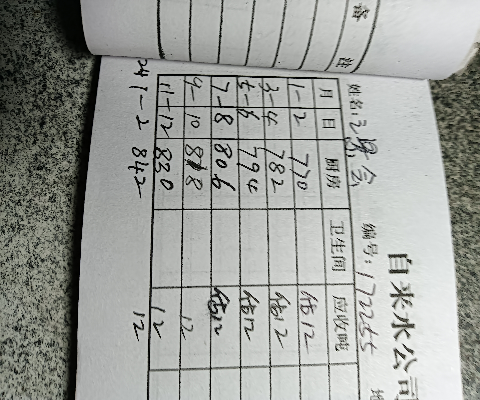 备 注
自来水公司
姓名: 编号: 172255 地
月 日 厨房 卫生间 应收吨
1-2 770 估12
3-4 782 估12
5-6 794 估12
7-8 806 估12
9-10 818 12
11-12 830 12
24 1-2 842 12